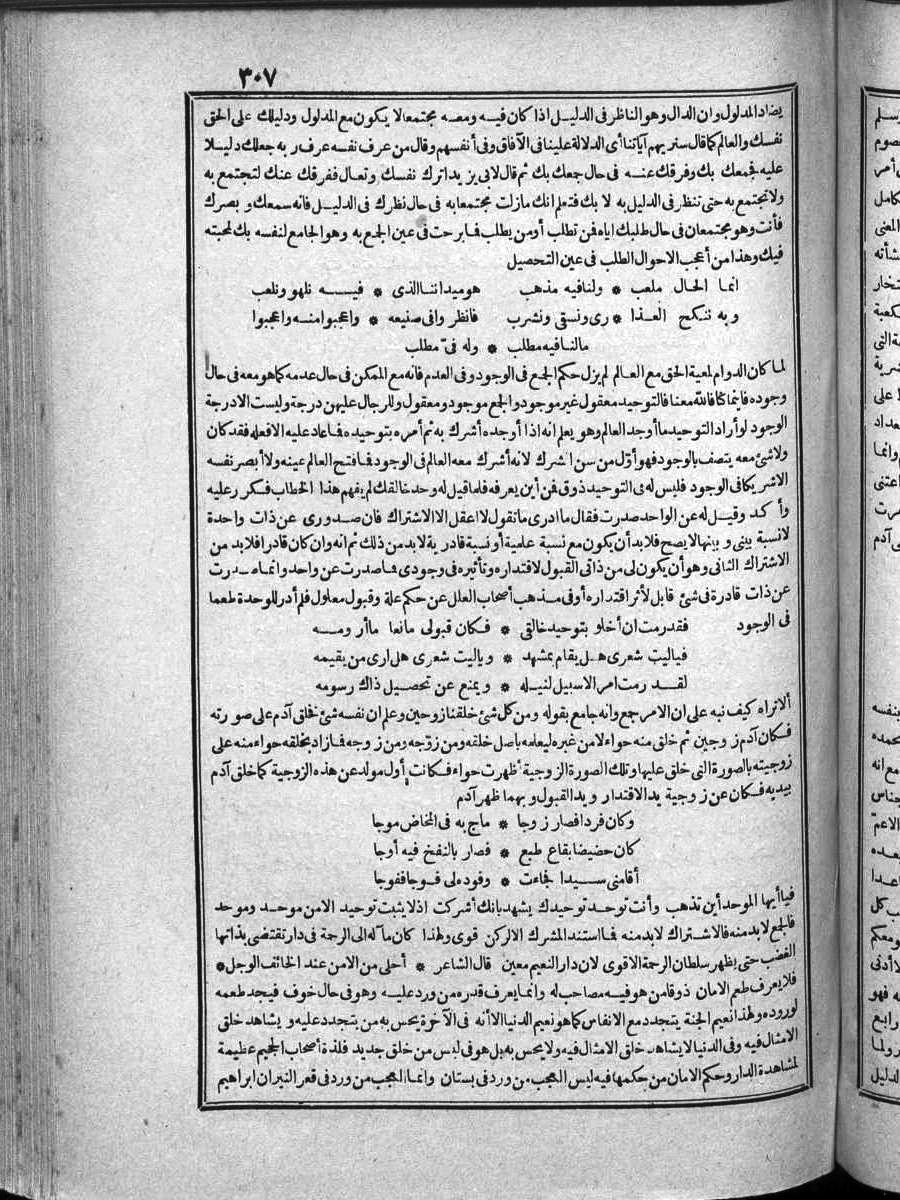 ٣٠٧
يضاد المدلول وان الدال وهو الناظر فى الدليل اذا كان فيه ومعه مجتمعا لا يكون مع المدلول ودليلك على الحق
نفسك والعالم كما قال سنريهم آياتنا أى الدلالة علينا فى الآفاق وفى أنفسهم وقال من عرف نفسه عرف ربه جعلك دليلا
عليه فجمعك بك وفرقك عنه فى حال جمعك بك ثم قال لابى يزيد اترك نفسك وتعال ففرقك عنك لتجتمع به
ولا تجتمع به حتى تنظر فى الدليل به لا بك فتعلم انك مازلت مجتمعا به فى حال نظرك فى الدليل فانه سمعك وبصرك
فأنت وهو مجتمعان فى حال طلبك اياه فمن تطلب أو من يطلب فما برحت فى عين الجمع به وهو الجامع لنفسه بك لمحبته
فيك وهذا من أعجب الاحوال الطلب فى عين التحصيل
انما الحال ملعب * ولنا فيه مذهب هو ميداننا الذى * فيه نلهو ونلعب
وبه ننكح العذا * رى ونسقى ونشرب فانظروا فى صنيعه * واعجبوا منه واعجبوا
مالنا فيه مطلب * وله فىّ مطلب
لما كان الدوام لمعية الحق مع العالم لم يزل حكم الجمع فى الوجود وفى العدم فانه مع الممكن فى حال عدمه كما هو معه فى حال
وجوده فاينما كنا فالله معنا فالتوحيد معقول غير موجود والجمع موجود ومعقول وللرجال عليهن درجة وليست الا درجة
الوجود لو أراد التوحيد ما أوجد العالم وهو يعلم انه اذا أوجده أشرك به ثم أمره بتوحيده فما عاد عليه الا فعله فقد كان
ولا شئ معه يتصف بالوجود فهو أوّل من سن الشرك لانه أشرك معه العالم فى الوجود فما فتح العالم عينه ولا أبصر نفسه
الا شريكا فى الوجود فليس له فى التوحيد ذوق فمن أين يعرفه فلما قيل له وحد خالقك لم يفهم هذا الخطاب فكرر عليه
وأكد وقيل له عن الواحد صدرت فقال ما ادرى ما تقول لا اعقل الا الاشتراك فان صدورى عن ذات واحدة
لا نسبة بينى وبينها لا يصح فلا بد أن يكون مع نسبة علمية أو نسبة قادرية لا بد من ذلك ثم انه وان كان قادرا فلا بد من
الاشتراك الثانى وهو أن يكون لى من ذاتى القبول لاقتداره وتأثيره فى وجودى فما صدرت عن واحد وانما صدرت
عن ذات قادرة فى شئ قابل لأثر اقتداره أو فى مذهب أصحاب العلل عن حكم علة وقبول معلول فلم أدر للوحدة طعما
فى الوجود فقد رمت ان أخلو بتوحيد خالقى * فكان قبولى مانعا ما أرومه
فياليت شعرى هل يقام بمشهد * وياليت شعرى هل ارى من يقيمه
لقد رمت امر الا سبيل لنيله * ويمنع عن تحصيل ذاك رسومه
ألا تراه كيف نبه على ان الامر جمع وانه جامع بقوله ومن كل شئ خلقنا زوجين وعلم ان نفسه شئ خلق آدم على صورته
فكان آدم زوجين ثم خلق منه حواء لا من غيره ليعلمه باصل خلقه ومن زوّجه ومن زوجه فما زاد بخلقه حواء منه على
زوجيته بالصورة التى خلق عليها وتلك الصورة الزوجية أظهرت حواء فكانت أول مولد عن هذه الزوجية كما خلق آدم
بيديه فكان عن زوجية يد الاقتدار ويد القبول وبهما ظهر آدم
وكان فردا فصار زوجا * ماج به فى المخاض موجا
كان حضيضا بقاع طبع * فصار بالنفخ فيه أوجا
أقامنى سيدا فجاءت * وفوده لى فوجا ففوجا
فيا أيها الموحد أين تذهب وأنت توحد توحيدك يشهد بانك أشركت اذ لا يثبت توحيد الا من موحد وموحد
فالجمع لا بد منه فالاشتراك لا بد منه فما استند المشرك الا لركن قوى ولهذا كان مآله الى الرحمة فى دار تقتضى بذاتها
الغضب حتى يظهر سلطان الرحمة الاقوى لان دار النعيم معين قال الشاعر * أحلى من الامن عند الخائف الوجل *
فلا يعرف طعم الامان ذوقا من هو فيه مصاحب له وانما يعرف قدره من ورد عليه وهو فى حال خوف فيجد طعمه
لوروده ولهذا نعيم الجنة يتجدد مع الانفاس كما هو نعيم الدنيا الا أنه فى الآخرة يحس به من يتجدد عليه ويشاهد خلق
الامثال فيه وفى الدنيا لا يشاهد خلق الامثال فيه ولا يحس به بل هو فى لبس من خلق جديد فلذة أصحاب الجحيم عظيمة
لمشاهدة الدار وحكم الامان من حكمها فيه ليس العجب من ورد فى بستان وانما العجب من ورد فى قعر النيران ابراهيم